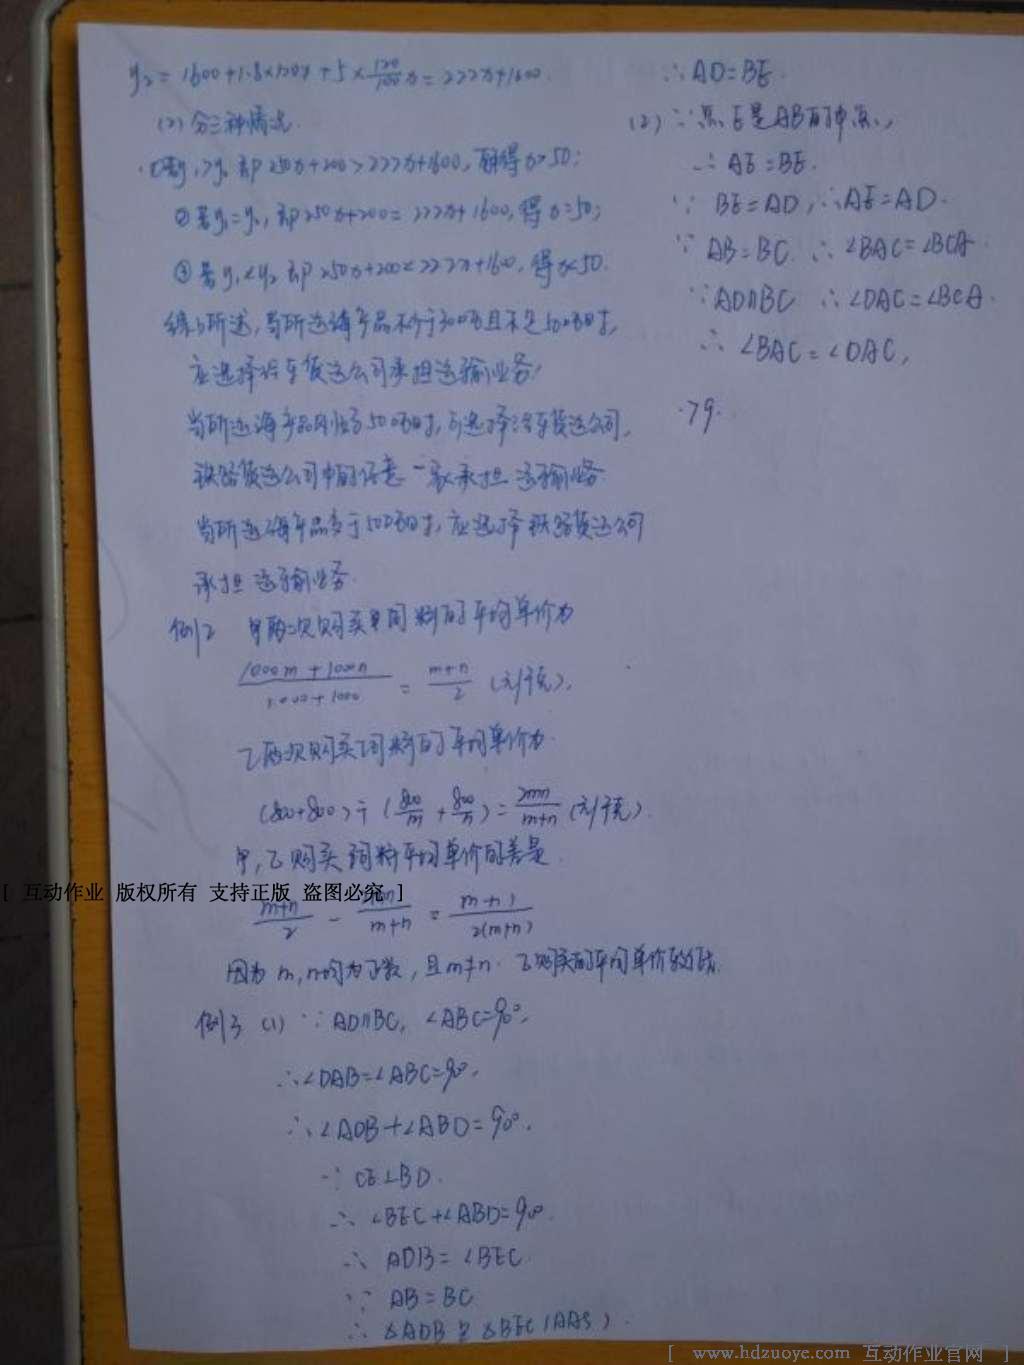 y₂ = 1600+1.8×120x+5×120/100 x = 222x+1600.
(2) 分三种情况.
①若y₁>y₂ 即 250x+200>222x+1600, 解得x>50;
②若y₁=y₂, 即250x+200=222x+1600, 得x=50;
③若y₁<y₂ 即 250x+200<222x+1600, 得x<50.
综上所述, 当所运海产品不少于30吨且不足50吨时,
应选择汽车货运公司承担运输业务;
当所运海产品刚好50吨时, 可选择汽车货运公司,
铁路货运公司中的任意一家承担运输业务.
当所运海产品多于50吨时, 应选择铁路货运公司
承担运输业务.
例2 甲两次购买饲料的平均单价为
(1000m+1000n)/(1000+1000) = (m+n)/2 (元/千克).
乙两次购买饲料的平均单价为
(800+800)÷(800/m+800/n)=2mn/(m+n) (元/千克).
甲, 乙购买饲料平均单价的差是
(m+n)/2 - 2mn/(m+n) =
2(m+n)
因为 m, n均为正数, 且m≠n. 乙购买的平均单价较低.
例3 (1) ∵AD∥BC, ∠ABC=90°,
∴∠DAB=∠ABC=90°,
∴∠ADB+∠ABD=90°.
∵ CE⊥BD.
∴ ∠BEC+∠ABD=90°.
∴ ADB=∠BEC.
∵ AB=BC
∴ △ADB≌△BEC(AAS).
∴AD=BE.
(2) ∵点E是AB的中点,
∴AE=BE.
∵ BE=AD, ∴AE=AD.
∵ AB=BC. ∴ ∠BAC=∠BCA.
∵AD∥BC ∴∠DAC=∠BCA.
∴ ∠BAC=∠DAC,
79.
[ 互动作业 版权所有 支持正版 盗图必究 ]
[ www.hdzuoye.com 互动作业官网 ]